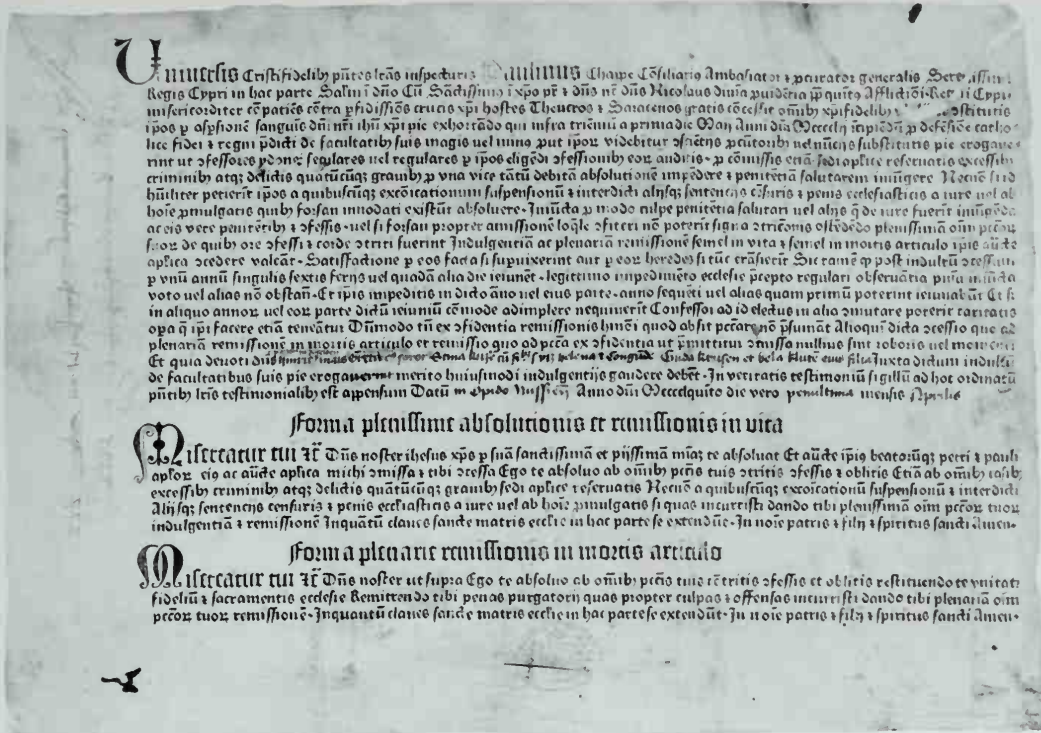 Uniuersis Cristifidelibꝫ pñtes lr̃as inspecturis Paulinus Chappe Cõsiliariꝰ Ambasiator ⁊ ꝓcurator generalis Sere issimi
Regis Cypri in hac parte Salm̃ ĩ dño Cũ Sãctissimꝰ ĩ xp̃o pr̃ ⁊ dñs nr̃ dñs Nicolaus diuĩa ꝓuidẽtia pp̃ quintꝰ Afflictiõi Reg i Cypri
misericorditer cõpatiẽs cõtra ꝑfidissimos crucis xp̃i hostes Theucros ⁊ Saracenos gratis cõcessit om̃ibꝫ xp̃ifidelibꝫ ostitutis
ip̃os ꝑ asp̃sionẽ sanguĩs dñi nr̃i ihũ xp̃i pie exhortãdo qui infra trienniũ a prima die Maij Anni dñi Mcccclij incipiẽdũ ꝓ defẽsiõe catho-
lice fidei ⁊ regni p̃dicti de facultatibꝫ suis magis uel minꝰ ꝓut ip̃oꝝ videbitur ꝯsciẽtijs ꝓcuratoribꝫ uel nũcijs substitutis pie erogaue-
rint ut ꝯfessores ydonei seculares uel regulares ꝑ ip̃os eligẽdi ꝯfessionibꝫ eoꝝ auditis ꝓ cõmissis etiã sedi aplice reseruatis excessibꝫ
criminibꝫ atqꝫ delictis quãtũcũqꝫ grauibꝫ ꝓ vna vice tãtũ debitã absolutionẽ impẽdere ⁊ penitẽtiã salutarem iniũgere Necnõ si id
hũiliter petierĩt ip̃os a quibuscũqꝫ excõicationum suspensionũ ⁊ interdicti alijsqꝫ sentencijs cẽsuris ⁊ penis ecclesiasticis a iure uel ab
hoĩe ꝓmulgatis quibꝫ forsan innodati existũt absoluere. Iniũcta ꝓ modo culpe penitẽtia salutari uel alijs q̃ de iure fuerit iniũgẽda
ac eis vere penitẽtibꝫ ⁊ ꝯfessis. uel si forsan propter amissionẽ loq̃le ꝯfiteri nõ poterĩt signa ꝯtricõnis ostẽdẽdo plenissimã oĩm pc̃coꝝ
suoꝝ de quibꝫ ore ꝯfessi ⁊ corde ꝯtriti fuerint Indulgentiã ac plenariam remissionẽ semel in vita ⁊ semel in mortis articulo ip̃is aũcte
aplica ꝯcedere valeãt. Satisfactione ꝑ eos facta si supuixerint aut ꝑ eoꝝ heredes si tũc trãsierĩt Sic tamẽ ꝙ post indultũ ꝯcessum
ꝑ vnũ annũ singulis sextis ferijs uel quadã alia die ieiunẽt. legittimo impedimẽto ecclesie p̃cepto regulari obseruãtia pn̄ia iniũcta
voto uel alias nõ obstañ. Et ip̃is impeditis in dicto ãno uel eius parte. anno sequẽti uel alias quam primũ poterint ieiunabũt Et si
in aliquo annoꝝ uel eoꝝ parte dictũ ieiuniũ cõmode adimplere nequiuerit Confessor ad id electus in alia ꝯmutare poterit caritatis
oꝑa q̃ ip̃i facere etiã teneãtur Dũmodo tñ ex ꝯfidentia remissionis hmõi quod absit pc̃care nõ p̃sumãt Alioqui dicta ꝯcessio quo ad
plenariam remissionẽ in mortis articulo et remissio quo ad pc̃ta ex ꝯfidentia ut p̃mittitur ꝯmissa nullius sint roboris uel momenti
Et quia deuoti iuxta dictum indultũ
de facultatibus suis pie erogauerunt merito huiusmodi indulgentijs gaudere debẽt. In veritatis testimoniũ sigillũ ad hoc ordinatũ
pñtibꝫ lr̃is testimonialibꝫ est appensum Datũ in Opido Nussieñ Anno dñi Mcccclquĩto die vero penultima mensis Aprilis
Forma plenissime absolutionis et remissionis in vita
Misereatur tui ⁊c̃ Dñs noster ihesus xp̃s ꝑ suã sanctissimã et pijssimã miãꝫ te absoluat Et aũcte ip̃iꝰ beatoꝝqꝫ petri ⁊ pauli
aploꝝ eiꝰ ac aũcte aplica michi ꝯmissa ⁊ tibi ꝯcessa Ego te absoluo ab om̃ibꝫ pc̃tis tuis ꝯtritis ꝯfessis ⁊ oblitis Etiã ab om̃ibꝫ casibꝫ
excessibꝫ criminibꝫ atqꝫ delictis quãtũcũqꝫ grauibꝫ sedi aplice reseruatis Necnõ a quibuscũqꝫ excõicationũ suspensionũ ⁊ interdicti
Alijsqꝫ sentencijs censuris ⁊ penis ecclĩasticis a iure uel ab hoĩe ꝓmulgatis si quas incurristi dando tibi plenissimã oĩm pc̃coꝝ tuoꝝ
indulgentiã ⁊ remissionẽ Inquãtũ claues sancte matris ecclĩe in hac parte se extendũt. In noĩe patris ⁊ filij ⁊ spiritus sancti Amen.
Forma plenarie remissionis in mortis articulo
Misereatur tui ⁊c̃ Dñs noster ut supra Ego te absoluo ab om̃ibꝫ pc̃tis tuis cõtritis ꝯfessis et oblitis restituendo te vnitati
fidelium ⁊ sacramentis ecclesie Remittendo tibi penas purgatorij quas propter culpas ⁊ offensas incurristi dando tibi plenariã oĩm
pc̃coꝝ tuoꝝ remissionẽ. Inquantũ claues sancte matris ecclĩe in hac parte se extendũt. In noĩe patris ⁊ filij ⁊ spiritus sancti Amen.